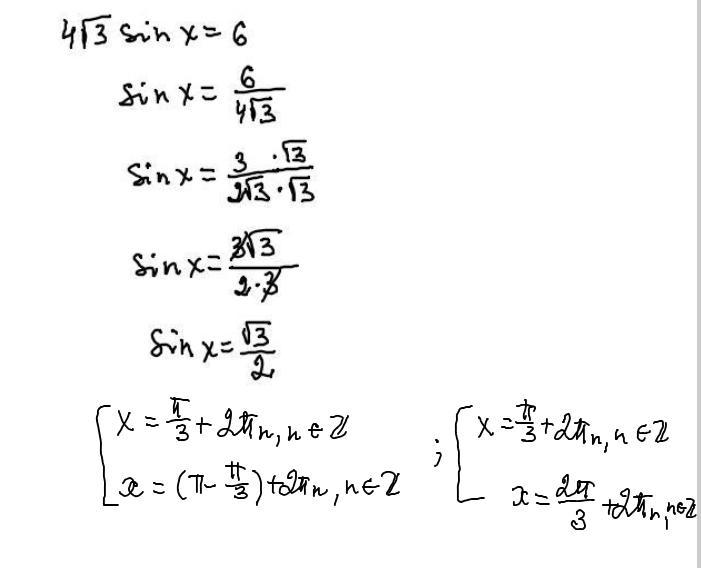 4√3 sin x = 6
sin x = 6/4√3
sin x = 3 · √3/2√3 · √3
sin x = 3√3/2 · 3
sin x = √3/2
[x = π/3 + 2πn, n ∈ ℤ
x = (π - π/3) + 2πn, n ∈ ℤ
; [x = π/3 + 2πn, n ∈ ℤ
x = 2π/3 + 2πn, n ∈ ℤ